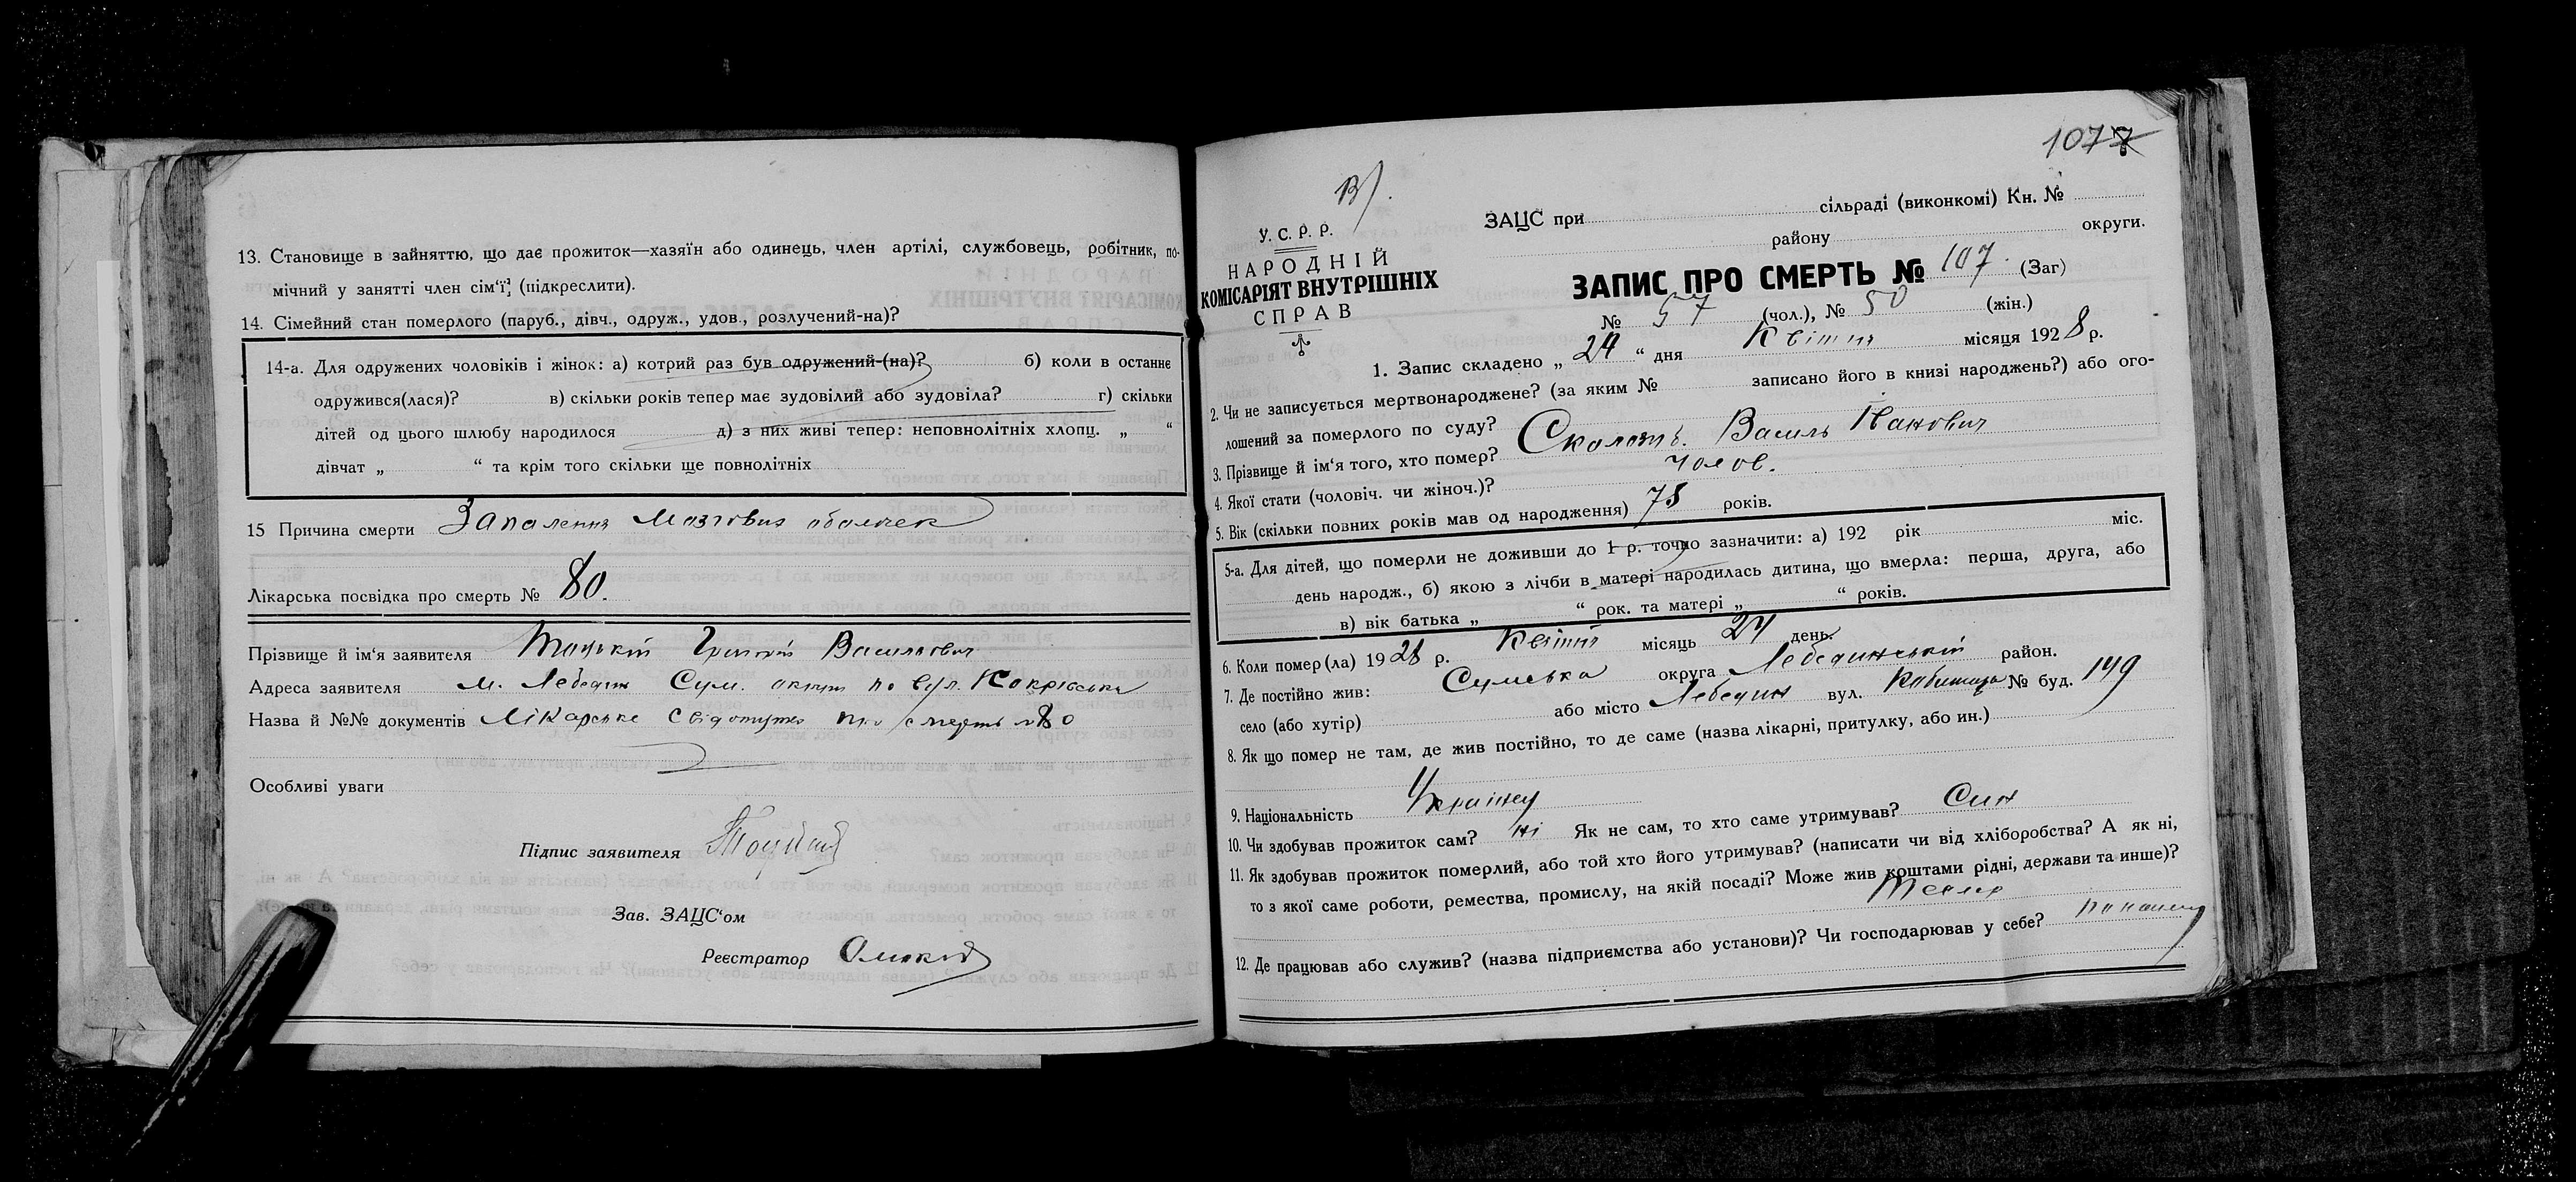 13. Становище в зайняттю, що дає прожиток—хазяїн або одинець, член артілі, службовець, робітник, по-
мічний у занятті член сім‘ї, (підкреслити).
14. Сімейний стан померлого (паруб., дівч., одруж., удов., розлучений-на)?
14-а. Для одружених чоловіків і жінок: а) котрий раз був одружений-(на)? б) коли в останнє
одружився(лася)? в) скільки років тепер має зудовілий або зудовіла? г) скільки
дітей од цього шлюбу народилося д) з них живі тепер: неповнолітніх хлопц. „ “
дівчат „ “ та крім того скільки ще повнолітніх
15 Причина смерти Запалення Мозгових оболочек
Лікарська посвідка про смерть № 80.
Прізвище й ім‘я заявителя Григорій Васильович
Адреса заявителя м. Лебедин Сум. округи по вул.
Назва й №№ документів Лікарське свідотутво про смерть № 80
Особливі уваги
Підпис заявителя
Зав. ЗАЦС‘ом
Реєстратор
1077
В)
У. С. Р. Р.
НАРОДНІЙ
КОМІСАРІЯТ ВНУТРІШНІХ
СПРАВ
ЗАЦС при сільраді (виконкомі) Кн. №
району округи.
ЗАПИС ПРО СМЕРТЬ № 107. (Заг)
№ 57 (чол.), № 50 (жін.)
1. Запис складено „ 24 “ дня Квітня місяця 1928 р.
2. Чи не записується мертвонароджене? (за яким № записано його в книзі народжень?) або ого-
лошений за померлого по суду?
3. Прізвище й ім‘я того, хто помер? Василь Іванович
4. Якої стати (чоловіч. чи жіноч.)? чолов.
5. Вік (скільки повних років мав од народження) 78 років.
5-а. Для дітей, що померли не доживши до 1 р. точно зазначити: а) 192 рік міс.
день народж., б) якою з лічби в матері народилась дитина, що вмерла: перша, друга, або
в) вік батька „ “ рок. та матері „ “ років.
6. Коли помер(ла) 1928 р. Квітня місяць 24 день.
7. Де постійно жив: Сумська округа Лебединський район.
село (або хутір) або місто Лебедин вул. № буд. 149
8. Як що помер не там, де жив постійно, то де саме (назва лікарні, притулку, або ин.)
9. Національність Українец
10. Чи здобував прожиток сам? ні Як не сам, то хто саме утримував? Син
11. Як здобував прожиток померлий, або той хто його утримував? (написати чи від хліборобства? А як ні,
то з якої саме роботи, ремества, промислу, на якій посаді? Може жив коштами рідні, держави та инше)?
12. Де працював або служив? (назва підприємства або установи)? Чи господарював у себе?